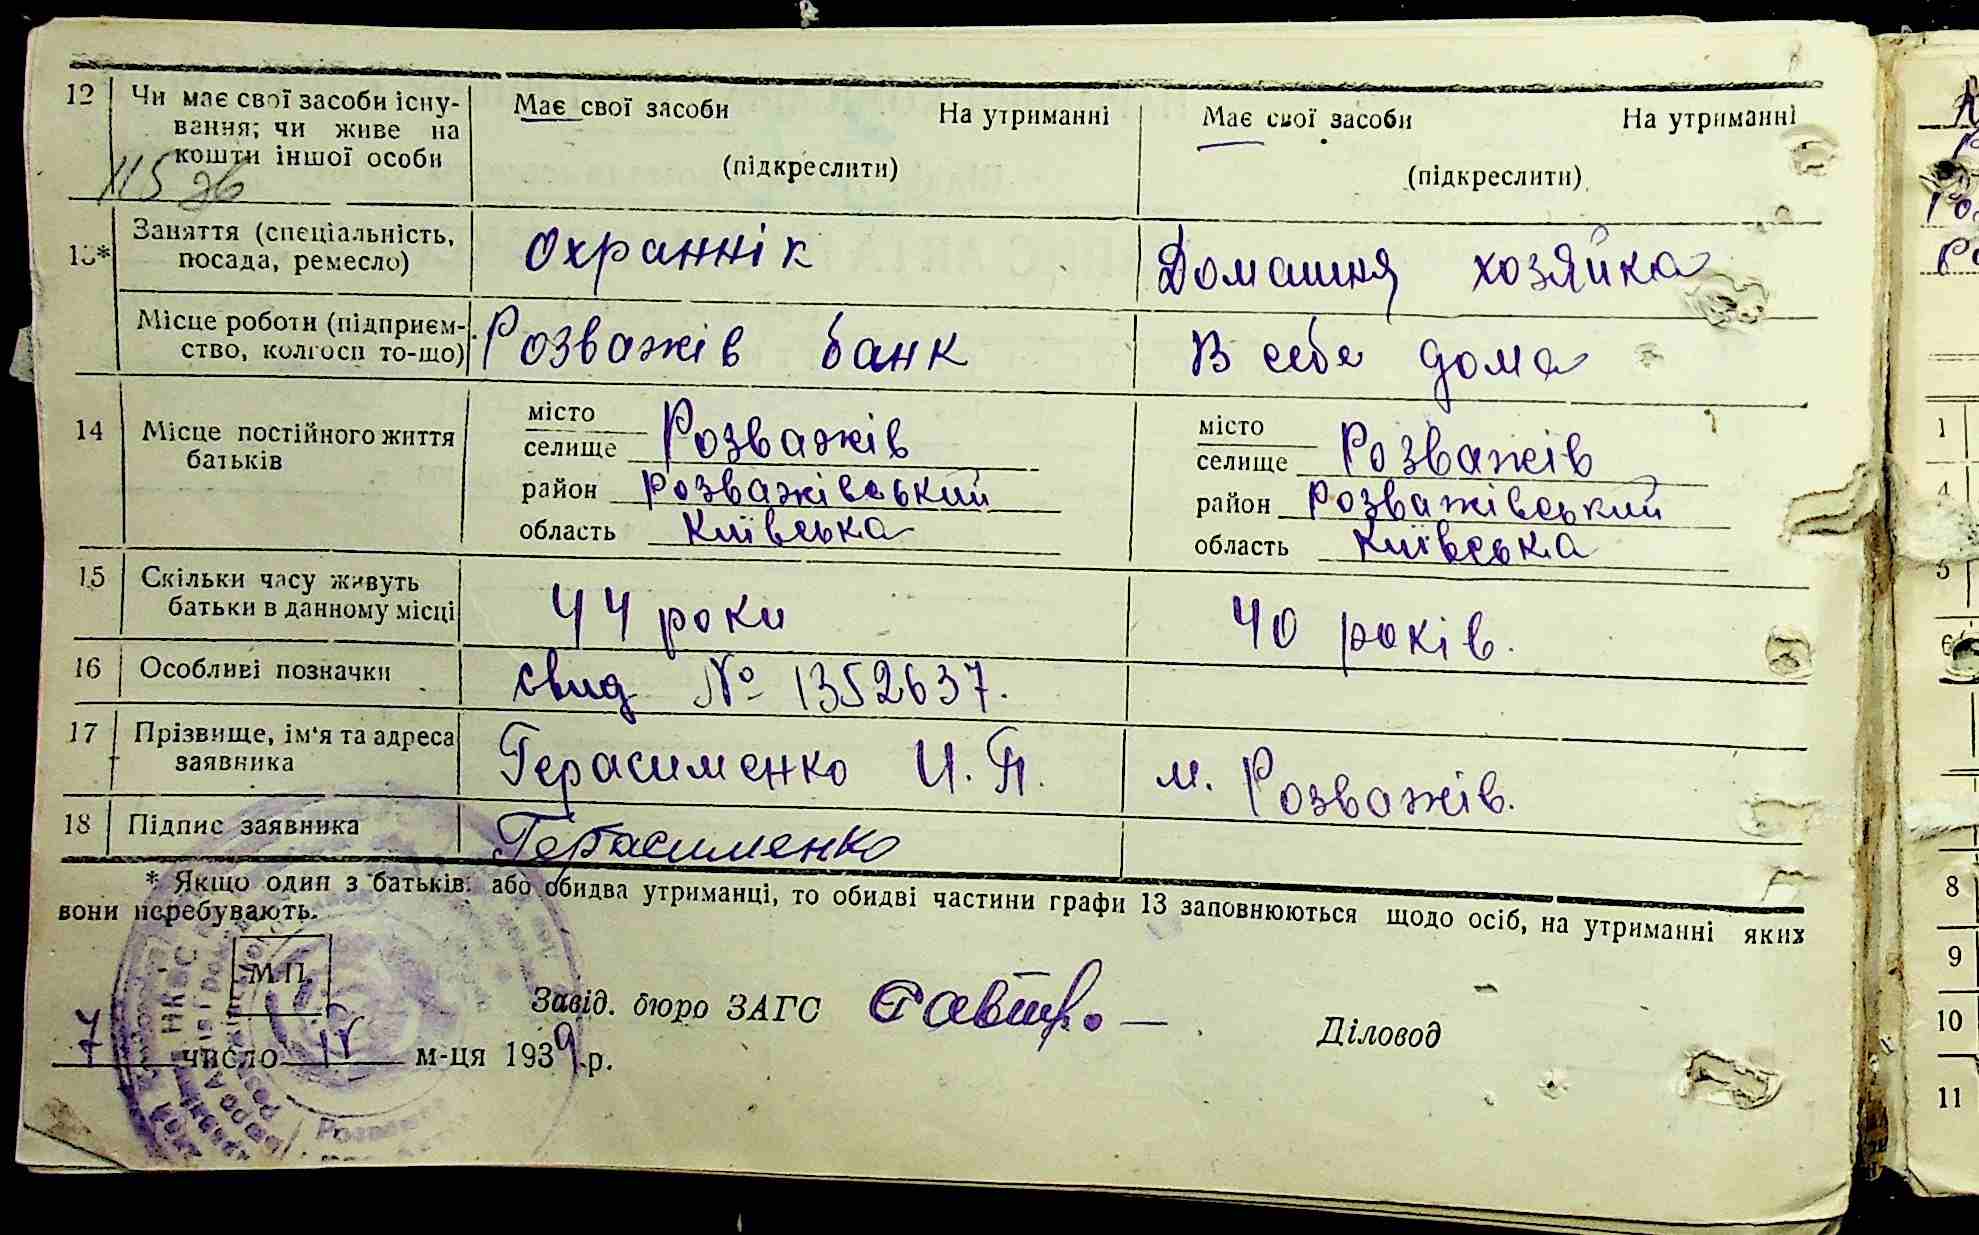 12 Чи має свої засоби існу-
вання; чи живе на
кошти іншої особи
Має свої засоби На утриманні
(підкреслити)
Має свої засоби На утриманні
(підкреслити)
115 зв
13* Заняття (спеціальність,
посада, ремесло)
Охраннік
Домашня хозяйка
Місце роботи (підприєм-
ство, колгосп то-що)
Розважів банк
В себе дома
14 Місце постійного життя
батьків
місто
селище Розважів
район Розважівський
область Київська
місто
селище Розважів
район Розважівський
область Київська
15 Скільки часу живуть
батьки в данному місці
44 роки
40 років.
16 Особливі позначки
свид № 1352637.
17 Прізвище, ім'я та адреса
заявника
Герасименко И. П.
м. Розважів.
18 Підпис заявника
Герасименко
* Якщо один з батьків або обидва утриманці, то обидві частини графи 13 заповнюються щодо осіб, на утриманні яких
вони перебувають.
М.П.
Завід. бюро ЗАГС
Діловод
7 число IV м-ця 1939 р.
1
4
5
6
8
9
10
11